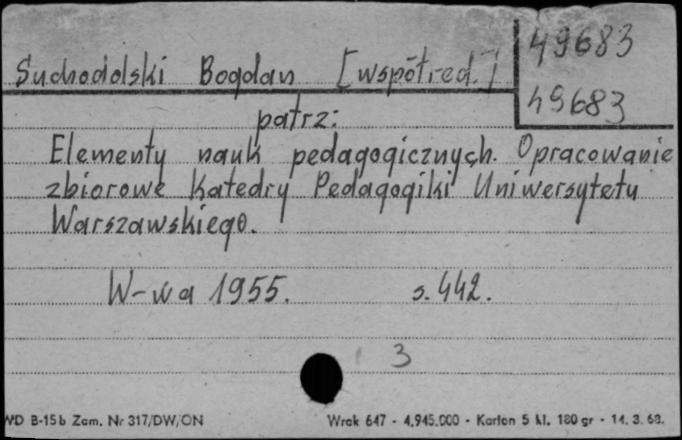 49683
Suchodolski Bogdan [współred.]
49683
patrz:
Elementy nauk pedagogicznych. Opracowanie
zbiorowe Katedry Pedagogiki Uniwersytetu
Warszawskiego.
W-wa 1955. s. 442.
3
WD B-15b Zam. Nr 317/DW/ON Wrak 647 - 4.945.000 - Karton 5 kl. 180 gr - 14. 3. 68.